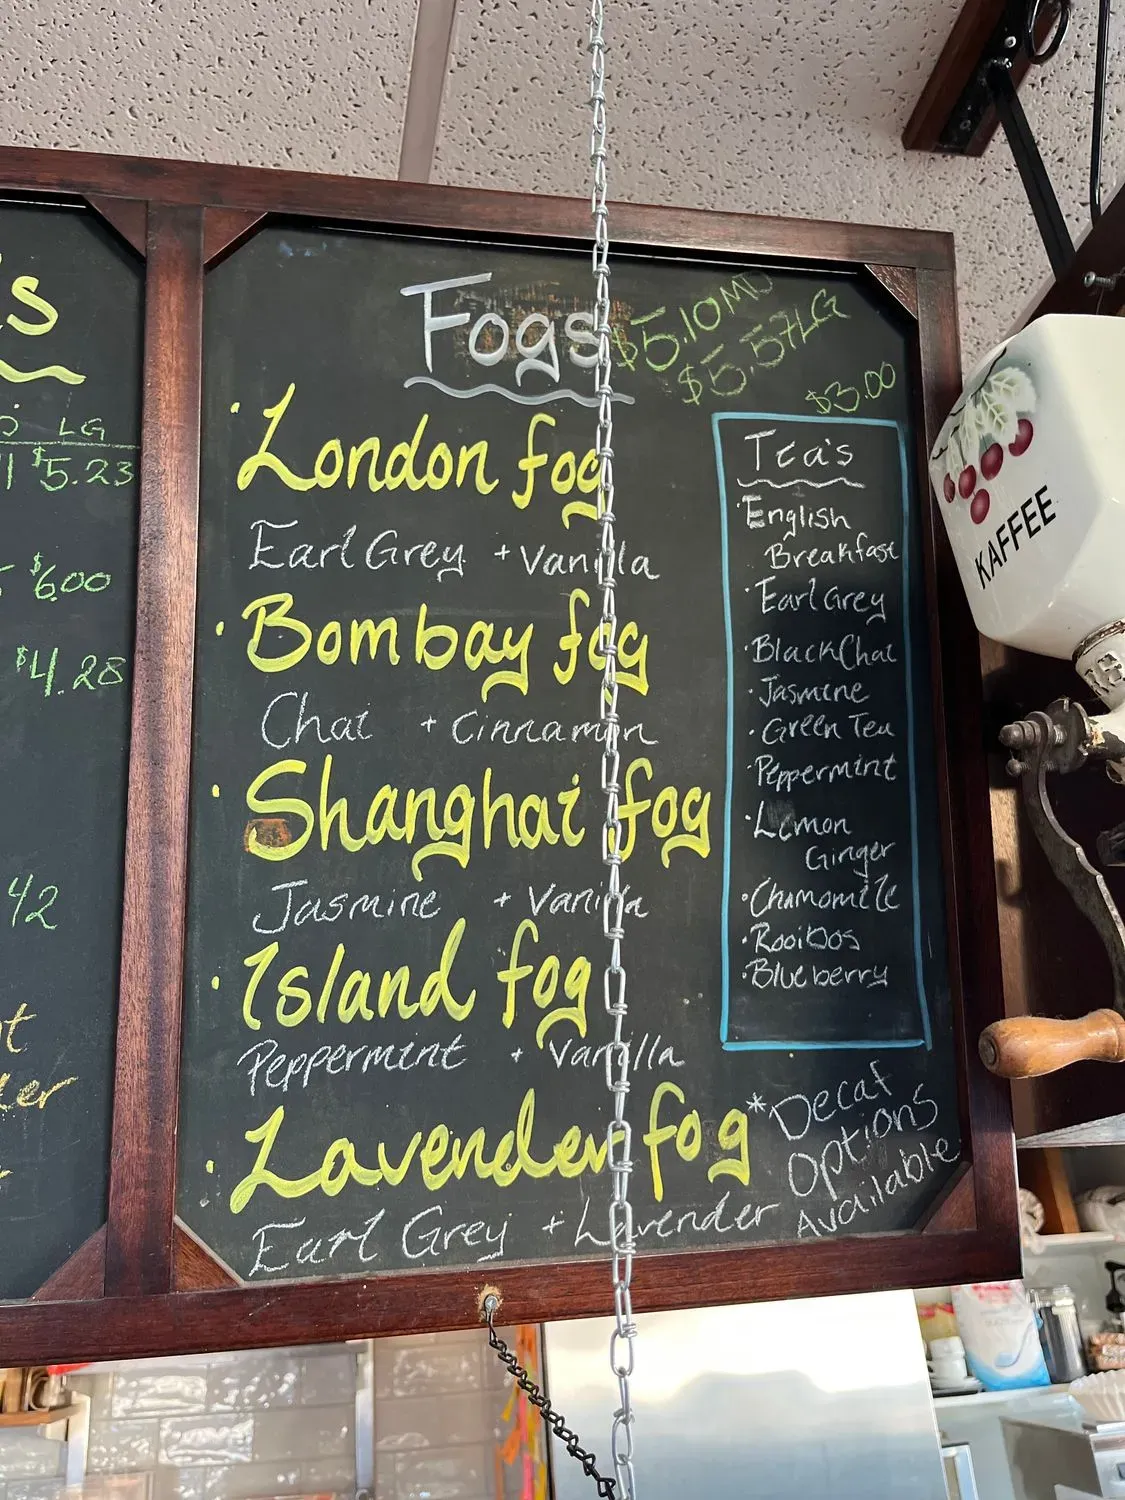 s
LG
$5.23
$6.00
$4.28
42
Fogs
$5.10 MD
$5.57 LG
• London fog
Earl Grey + Vanilla
• Bombay fog
Chai + Cinnamon
• Shanghai fog
Jasmine + Vanilla
• Island fog
Peppermint + Vanilla
• Lavender fog
Earl Grey + Lavender
$3.00
Tea's
• English
Breakfast
• Earl Grey
• Black Chai
• Jasmine
• Green Tea
• Peppermint
• Lemon
Ginger
• Chamomile
• Rooibos
• Blueberry
* Decaf
Options
Available
KAFFEE